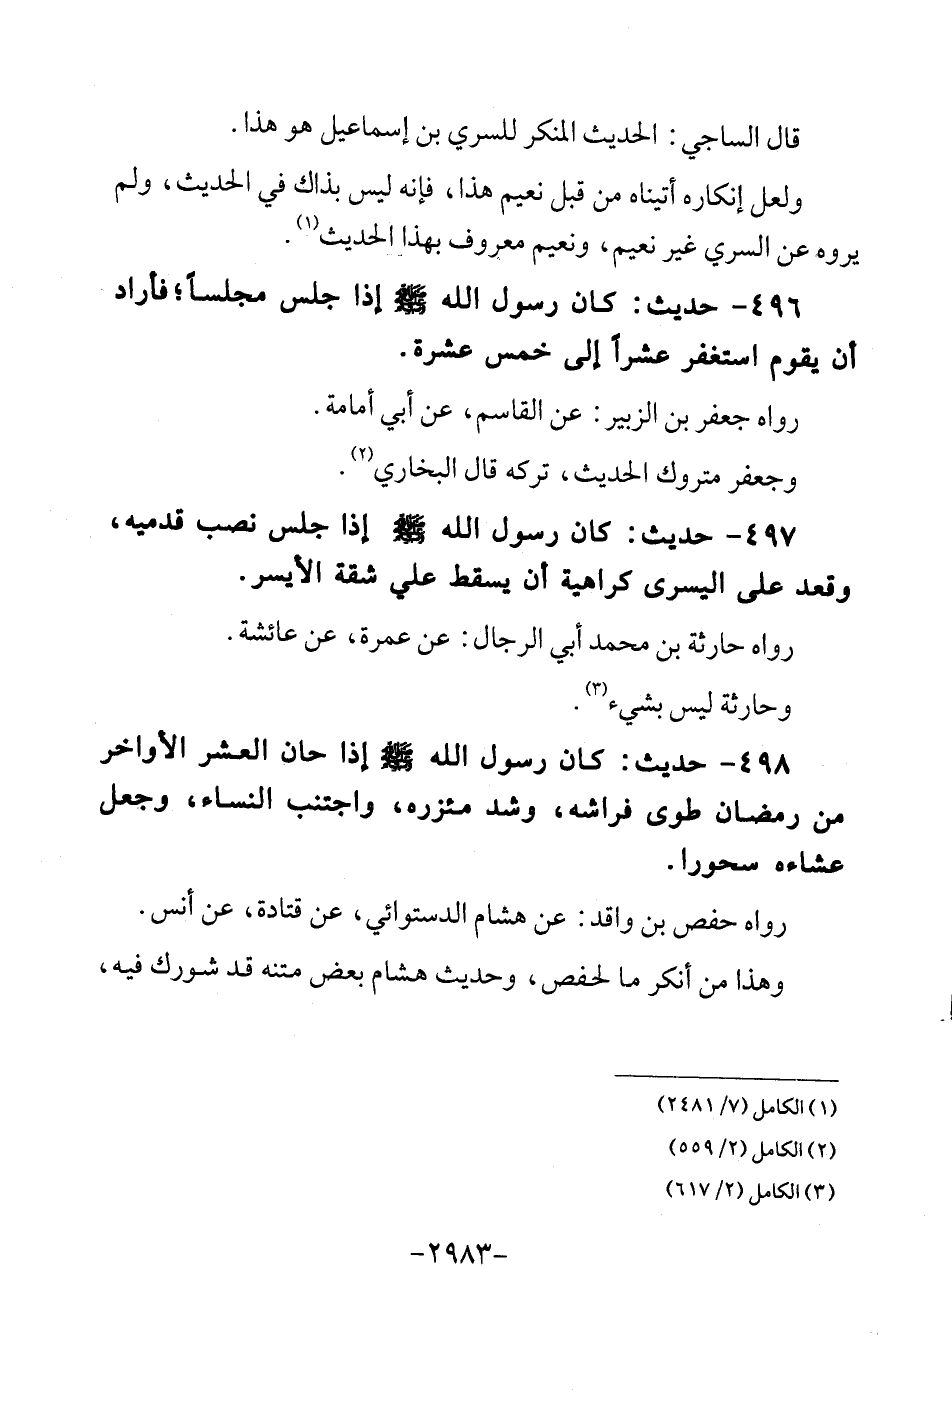 قال الساجي: الحديث المنكر للسري بن إسماعيل هو هذا.
ولعل إنكاره أتيناه من قبل نعيم هذا، فإنه ليس بذاك في الحديث، ولم
يروه عن السري غير نعيم، ونعيم معروف بهذا الحديث(١).
٤٩٦- حديث: كان رسول الله ﷺ إذا جلس مجلساً؛ فأراد
أن يقوم استغفر عشراً إلى خمس عشرة.
رواه جعفر بن الزبير: عن القاسم، عن أبي أمامة.
وجعفر متروك الحديث، تركه قال البخاري(٢).
٤٩٧- حديث: كان رسول الله ﷺ إذا جلس نصب قدميه،
وقعد على اليسرى كراهية أن يسقط علي شقة الأيسر.
رواه حارثة بن محمد أبي الرجال: عن عمرة، عن عائشة.
وحارثة ليس بشيء(٣).
٤٩٨- حديث: كان رسول الله ﷺ إذا حان العشر الأواخر
من رمضان طوى فراشه، وشد مئزره، واجتنب النساء، وجعل
عشاءه سحورا.
رواه حفص بن واقد: عن هشام الدستوائي، عن قتادة، عن أنس.
وهذا من أنكر ما لحفص، وحديث هشام بعض متنه قد شورك فيه،
(١) الكامل (٧/ ٢٤٨١)
(٢) الكامل (٢/ ٥٥٩)
(٣) الكامل (٢/ ٦١٧)
-٢٩٨٣-